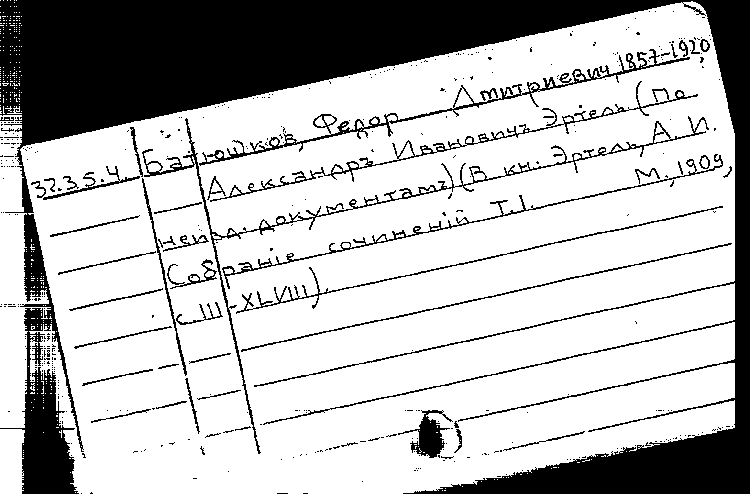 32.3.5.4. Батюшков, Федор Дмитриевич, 1857-1920,
Александръ Ивановичъ Эртель (По
неизд. документамъ) (В кн.: Эртель, А. И.
Собраніе сочиненій Т.I. М., 1909,
с. III-XLVIII).